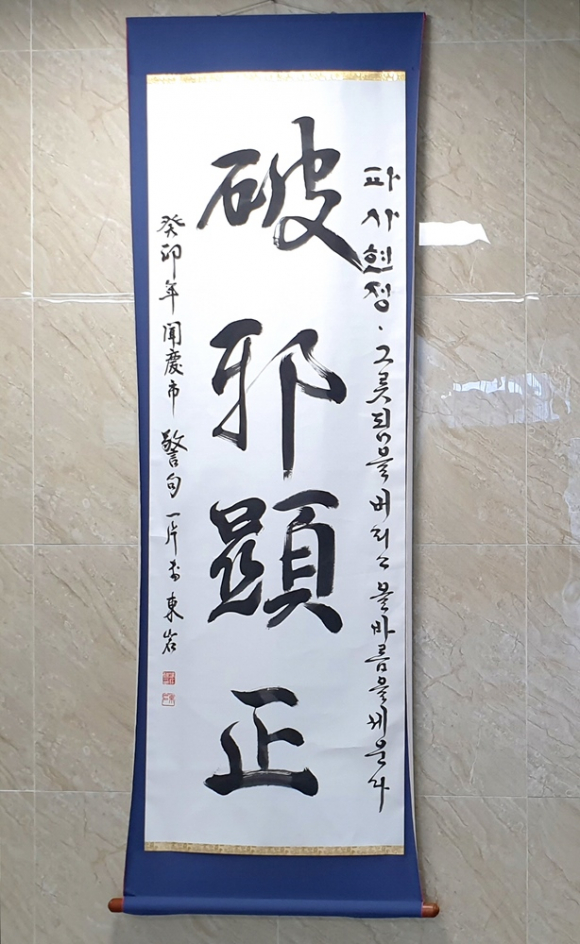 파사현정·그릇됨을 버리고 올바름을 세운다
破邪顯正
癸卯年 聞慶市 警句 一片 東岩